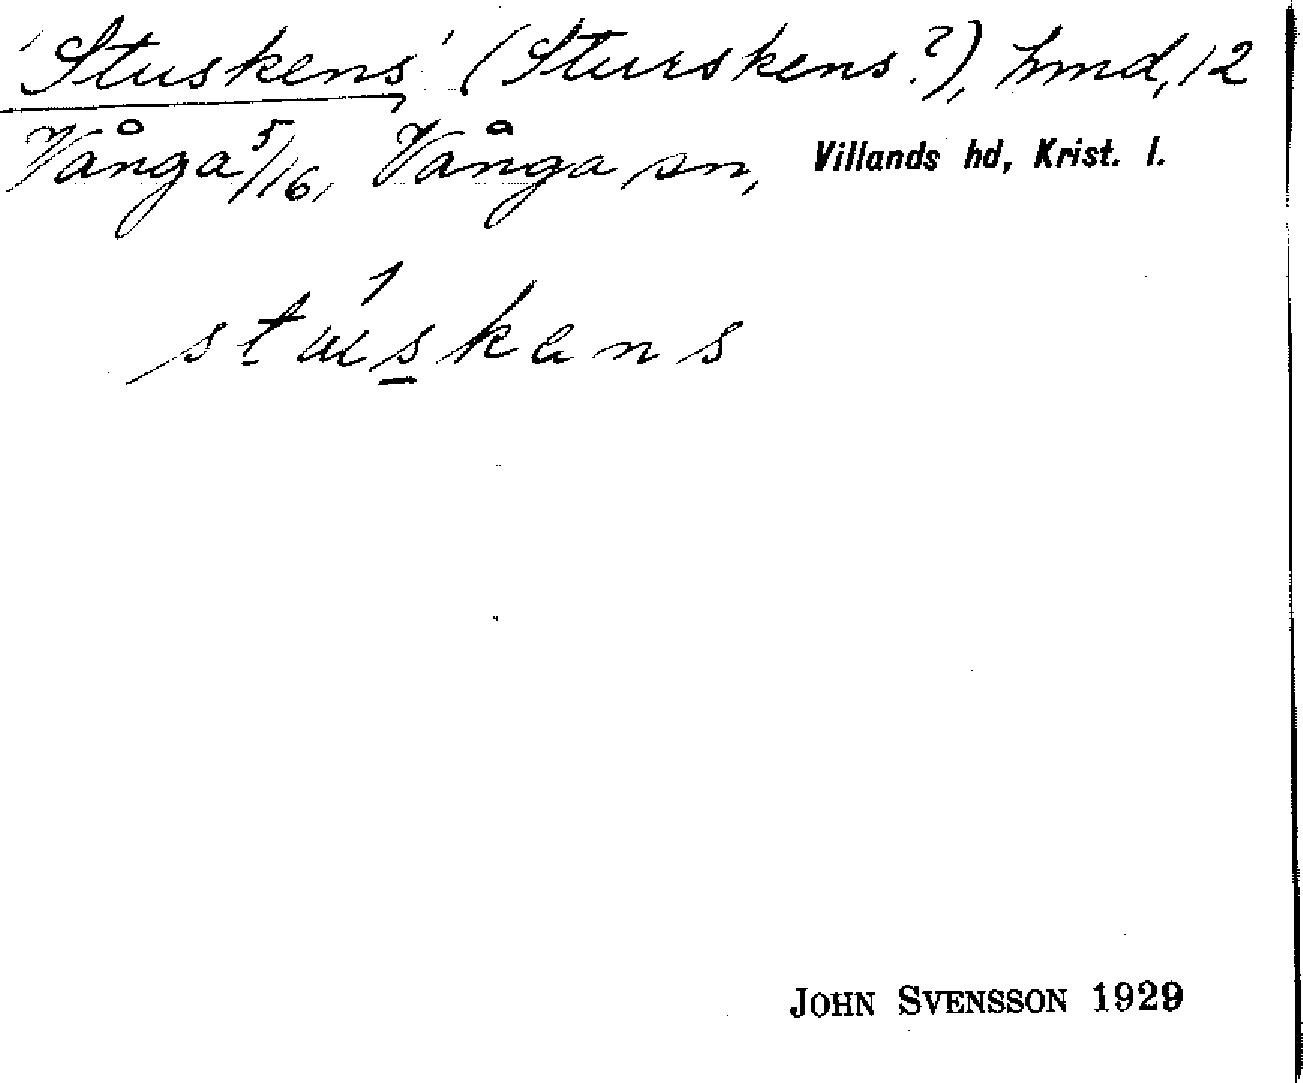 'Stuskens' (Sturskens?), hmd, 12
Vånga 5/16, Vånga sn, Villands hd, Krist. l.
stu̍skens
JOHN SVENSSON 1929